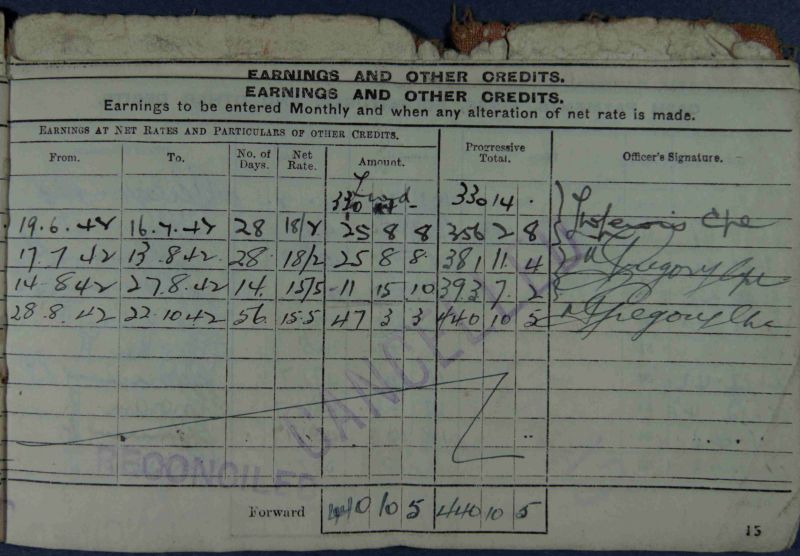 EARNINGS AND OTHER CREDITS.
EARNINGS AND OTHER CREDITS.
Earnings to be entered Monthly and when any alteration of net rate is made.
EARNINGS AT NET RATES AND PARTICULARS OF OTHER CREDITS.
From. To. No. of Days. Net Rate. Amount. Progressive Total. Officer's Signature.
330 14 -
19.6.42 16.7.42 28 18/2 25 8 8 356 2 8
17.7.42 13.8.42 28 18/2 25 8 8 381 11 4 Gregory
14.8.42 27.8.42 14. 15/5 11 15 10 393 7 2
28.8.42 22.10.42 56 15.5 47 3 3 440 10 5 Gregory
CANCELLED
RECONCILED
Forward 440 10 5 440 10 5
15